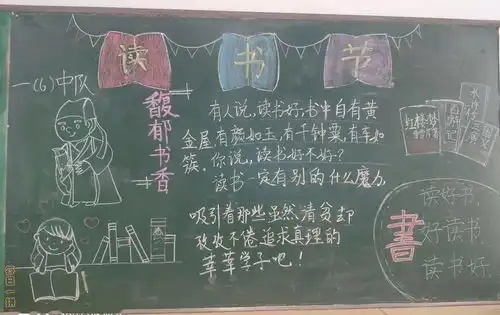 读书节
一(6)中队
馥郁书香
有人说,读书好,书中自有黄
金屋,有颜如玉,有千钟粟,有车如
簇.你说,读书好不好?
读书一定有别的什么魔力,
吸引着那些虽然清贫却
孜孜不倦追求真理的
莘莘学子吧!
红楼梦
西游记
水浒传
書
读好书,
好读书,
读书好.
每日一拼